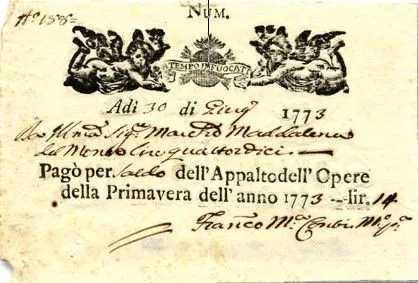 Nº 155=
NUM.
TEMPO INFUOCATI
Adi 30 di Giugº 1773
Sigr March
del Monte lire quattordici
Pagò per Saldo dell'Appalto dell'Opere
della Primavera dell'anno 1773 lir. 14
Franco Mª